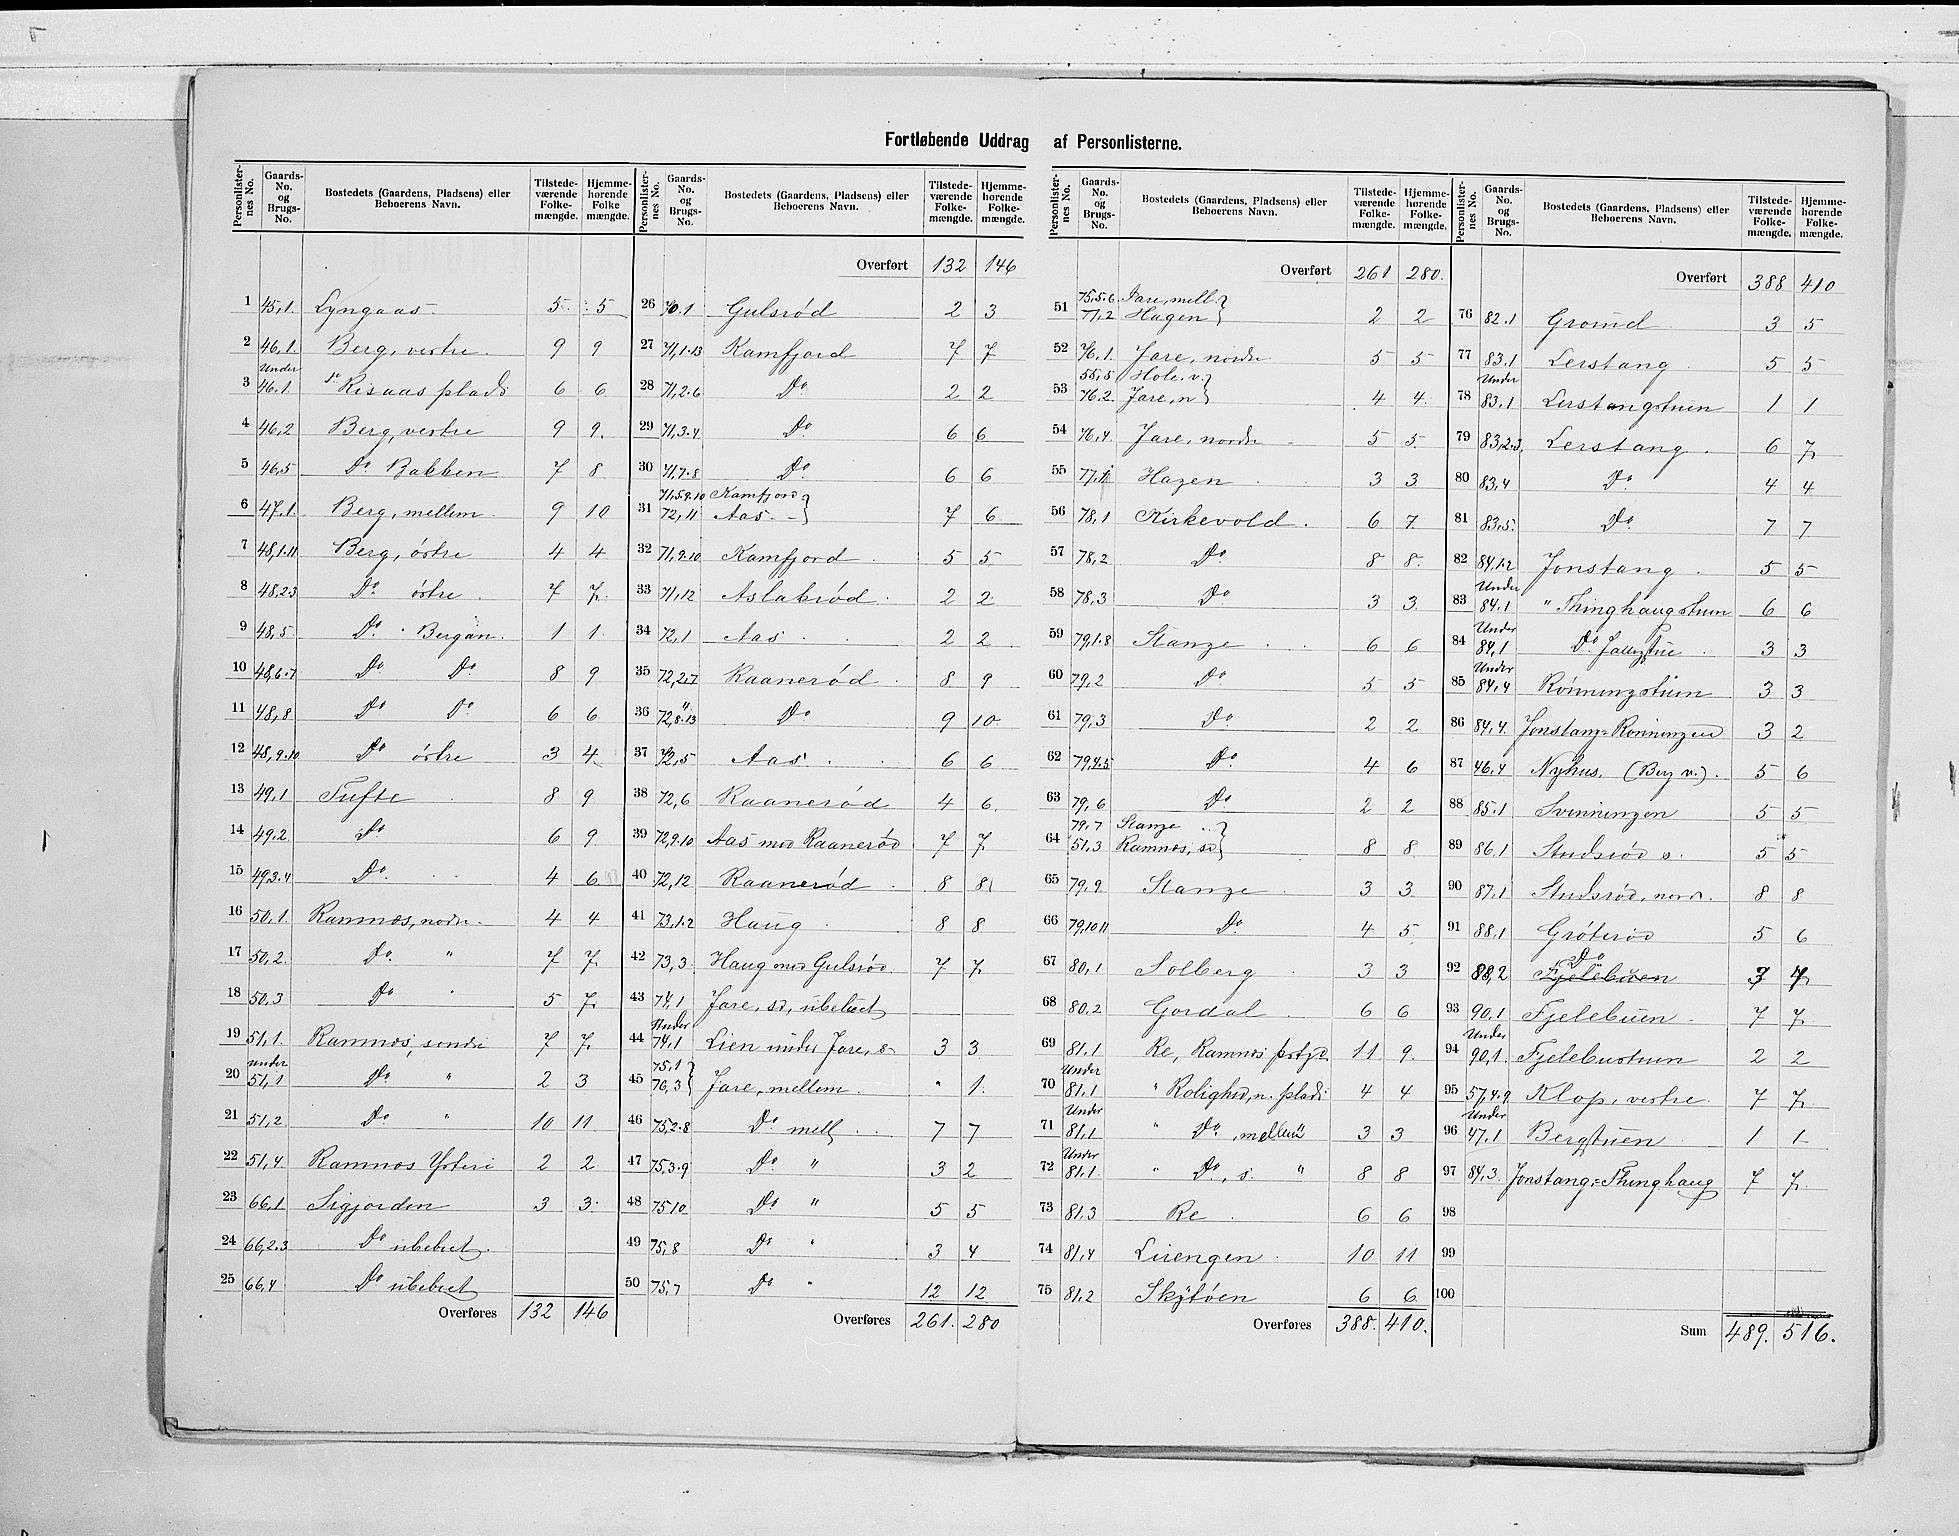 Fortløbende Uddrag af Personlisterne.
Personlister-nes No. Gaards-No. og Brugs-No. Bostedets (Gaardens, Pladsens) eller Beboerens Navn. Tilstede-værende Folke-mængde. Hjemme-hørende Folke mængde.
1 45,1. Lyngaas 5 5
2 46,1. Berg, vestre. 9 9
3 Under 46.1 Risaas plads 6 6
4 46,2 Berg, vestre 9 9.
5 46,5 Do Bakken 7 8
6 47,1. Berg, mellem 9 10
7 48,1.11 Berg, østre 4 4
8 48,2.3 Do østre 7 7
9 48,5 Do. Bergan. 1 1
10 48,6.7 Do Do 8 9
11 48,8 Do Do 6 6
12 48,9.10 Do østre 3 4
13 49,1 Tufte 8 9
14 49.2 Do 6 9
15 49,3.4 Do. 4 6
16 50,1. Ramnæs, nordre. 4 4
17 50,2. Do. " 7 7
18 50,3 Do " 5 7
19 51,1. Ramnæs, søndre 7 7
20 Under 51,1 Do. " 2 3
21 51,2 Do " 10 11
22 51,4. Ramnæs Ysteri 2 2
23 66,1 Sigjorden 3 3
24 66,2.3 Do ubeboet.
25 66,4 Do ubeboet
Overføres 132 146
Personlister-nes No. Gaards-No. og Brugs-No. Bostedets (Gaardens, Pladsens) eller Beboerens Navn. Tilstede-værende Folke-mængde. Hjemme-hørende Folke-mængde.
Overført 132 146
26 70.1 Gulsrød 2 3
27 71,1.13 Kamfjord 7 7
28 71,2.6 Do 2 2
29 71,3.4 Do. 6 6
30 71,7.8 Do. 6 6
31 71,5.9.10 Kamfjord } 72,11 Aas 7 6
32 71,9.10 Kamfjord 5 5
33 71,12 Aslakrød. 2 2
34 72,1 Aas 2 2
35 72,2.7 Raanerød 8 9
36 72,8.13 Do 9 10
37 72,5 Aas 6 6
38 72,6 Raanerød 4 6.
39 72,9.10 Aas med Raanerød 7 7
40 72,12 Raanerød 8 8
41 73,1.2 Haug 8 8
42 73,3. Haug med Gulsrød 7 7
43 74,1 Jare, sø, ubeboet
44 Under 74,1 Lien under Jare, s 3 3
45 75,1 76,3 } Jare, mellem. " 1.
46 75,2.8 Do mell 7 7
47 75,3.9 Do " 3 2
48 75,10 Do " 5 5
49 75,8 Do " 3 4
50 75,7 Do " 12 12
Overføres 261. 280
Personlister-nes No. Gaards-No. og Brugs-No. Bostedets (Gaardens, Pladsens) eller Beboerens Navn. Tilstede-værende Folke-mængde. Hjemme-hørende Folke-mængde.
Overført 261 280.
51 75,5.6. Jare, mell. } 77,2 Hagen 2 2
52 76,1. Jare, nordre 5 5
53 55,5 Hole, v. } 76.2. Jare, n 4 4
54 76,4 Jare, nordre 5 5
55 77,1 Hagen 3 3
56 78,1 Kirkevold. 6 7
57 78,2 Do. 8 8
58 78,3 Do 3 3
59 79,1.8 Stange 6 6
60 79,2 Do. 5 5
61 79,3 Do. 2 2
62 79,4.5 Do. 4 6
63 79,6 Do 2 2
64 79,7 Stange } 51,3 Ramnæs, sø 8 8
65 79,9 Stange 3 3
66 79,10 11 Do. 4 5
67 80,1 Solberg 3 3
68 80.2 Gordal 6 6
69 81,1 Re, Ramnæs prstgd. 11 9.
70 Under 81,1 " Rolighed, n. plads 4 4
71 Under 81,1 " Do, mellem 3 3
72 Under 81,1 " Do, s. " 8 8
73 81.3 Re 6 6
74 81,4 Lirengen 10 11
75 81,2 Skytøen 6 6
Overføres 388. 410.
Personlister-nes No. Gaards-No. og Brugs-No. Bostedets (Gaardens, Pladsens) eller Beboerens Navn. Tilstede-værende Folke-mængde. Hjemme-hørende Folke-mængde.
Overført 388 410
76 82.1 Grønud 3 5
77 83.1 Lerstang 5 5
78 Under 83,1 Lerstangstuen 1 1
79 83,2.3. Lerstang 6 7
80 83,4 Do. 4 4
81 83,5. Do. 7 7
82 84,1.2 Jonstang 5 5
83 Under 84.1 " Thinghaugstuen 6 6
84 Under 84,1 Do. 3 3
85 Under 84,4 Rønningstuen 3 3
86 84,4. Jonstang=Rønningen 3 2
87 46,4 Nyhus. (Berg v.). 5 6
88 85.1 Svinningen 5 5
89 86.1 Studsrød s. 5 5
90 87,1 Studsrød, nord. 8 8
91 88,1 Grøterød 5 6
92 88,2 Do Fjelebuen 3 4
93 90.1 Fjelebuen 7 7
94 Under 90,1. Fjelebustuen 2 2
95 57,4.9. Klop, vestre 7 7
96 Under 47.1 Bergstuen 1 1
97 84,3. Jonstang=Thinghaug 7 7
98
99
100
Sum 489. 516.